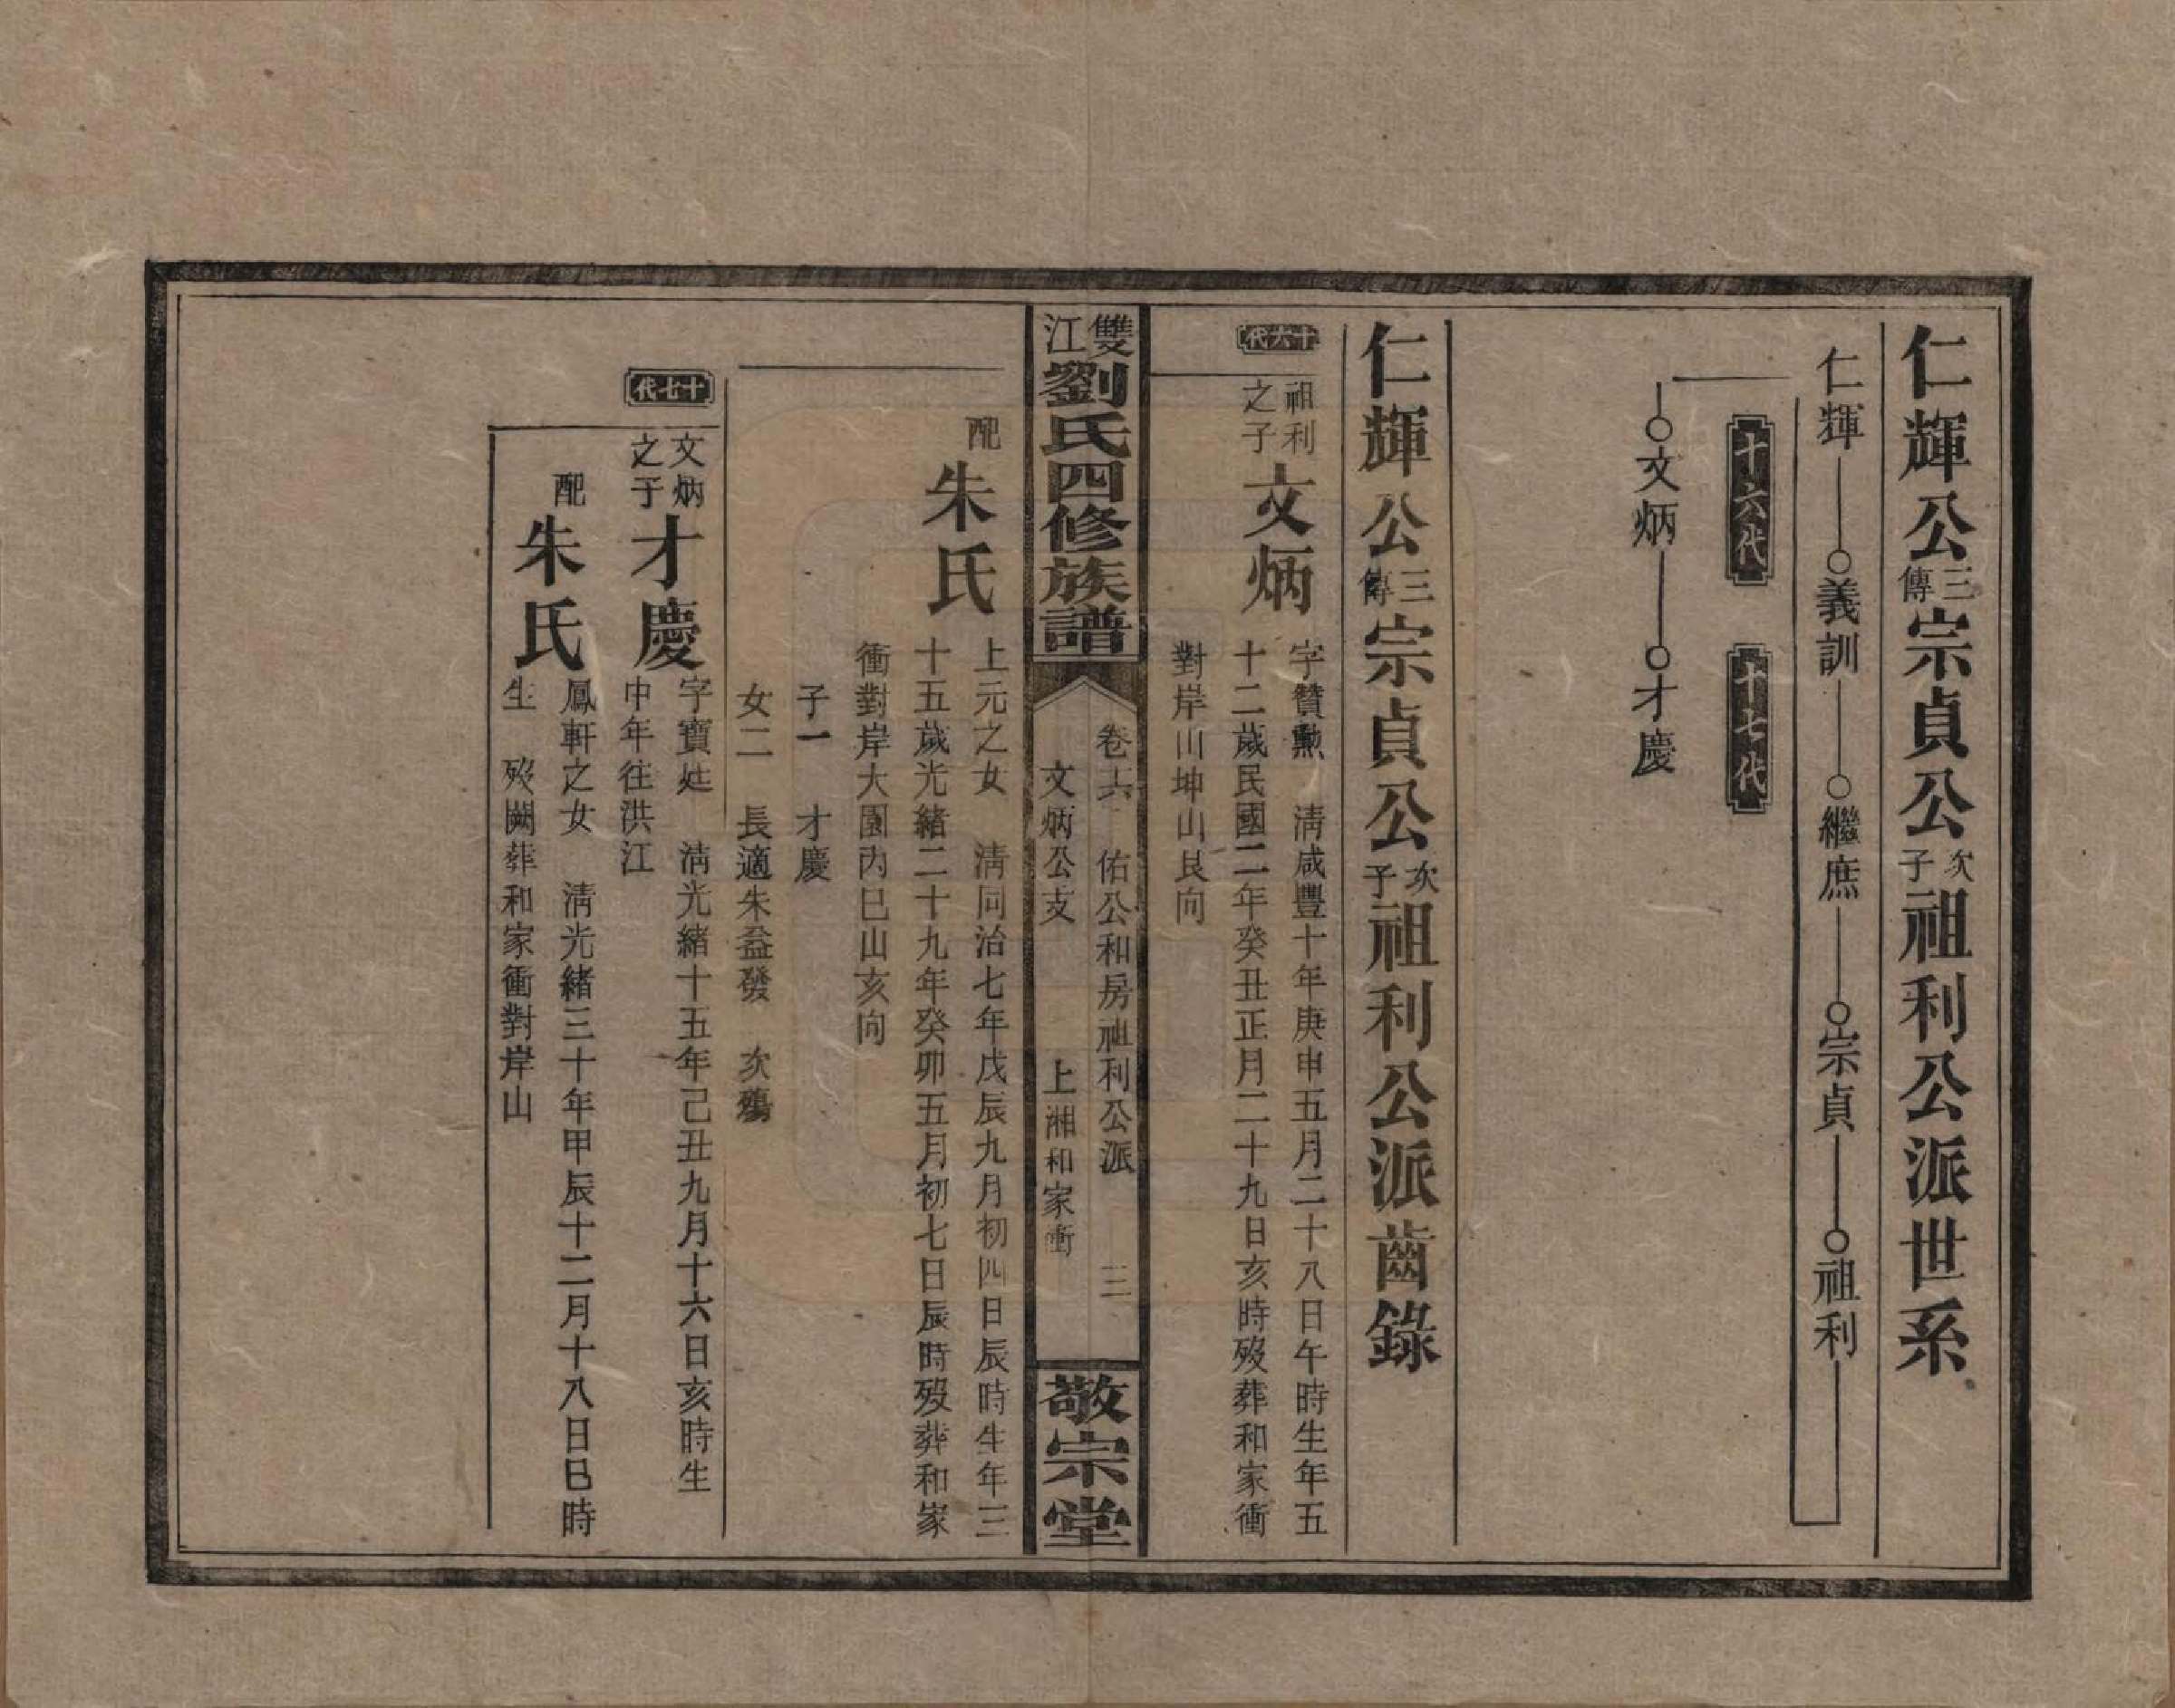 仁輝公三傳宗貞公次子祖利公派世系
仁輝 義訓 繼庶 宗貞 祖利
十六代 十七代
文炳 才慶
仁輝公三傳宗貞公次子祖利公派齒錄
十六代
祖利之子 文炳 字贊勳 淸咸豐十年庚申五月二十八日午時生年五
十二歲民國二年癸丑正月二十九日亥時歿葬和家衝
對岸山坤山艮向
雙江劉氏四修族譜
卷六 佑公和房祖利公派 三
文炳公支 上湘和家衝
敬宗堂
配 朱氏 上元之女 淸同治七年戊辰九月初四日辰時生年三
十五歲光緒二十九年癸卯五月初七日辰時歿葬和家
衝對岸大園內巳山亥向
子一 才慶
女二 長適朱益發 次殤
十七代
文炳之子 才慶 字寶廷 淸光緒十五年己丑九月十六日亥時生
中年往洪江
配 朱氏 鳳軒之女 淸光緒三十年甲辰十二月十八日巳時
生 歿闕葬和家衝對岸山